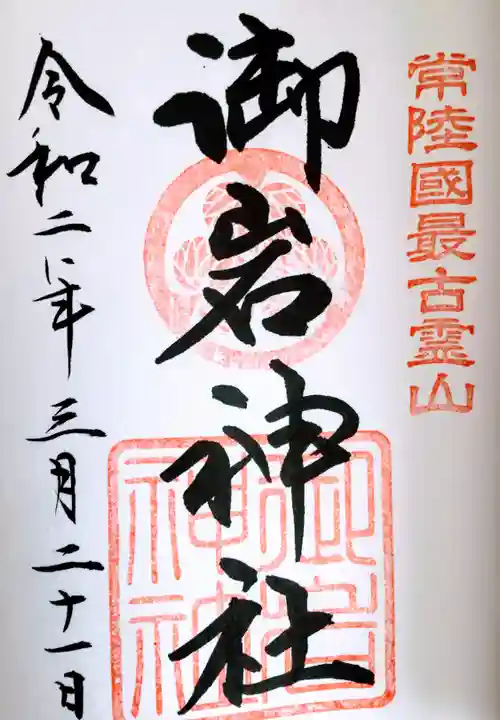 常陸國最古霊山
御岩神社
令和二年三月二十一日
御岩神社